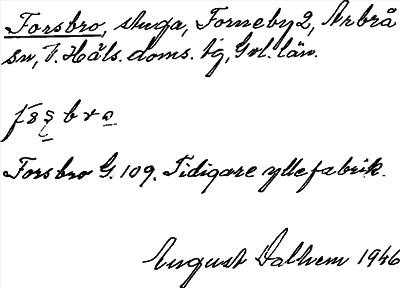 Forsbro, stuga, Forneby 2, Arbrå
sn, V. Häls. doms. tg, Gvl. län.
fosbro
Forsbro G. 109. Tidigare yllefabrik.
August Dalhem 1946